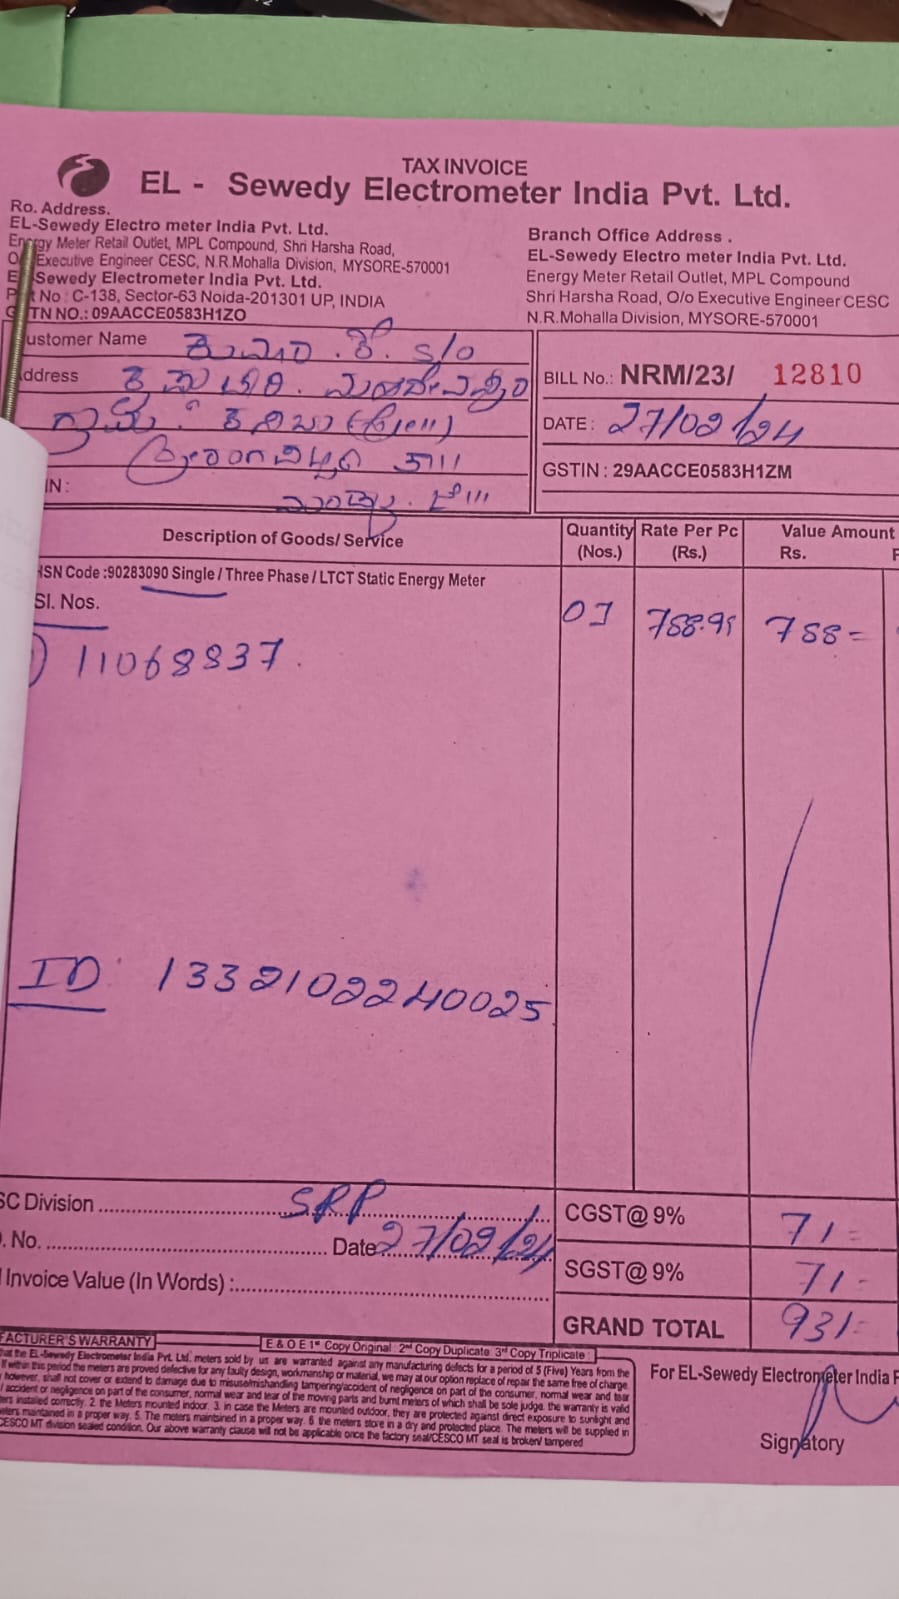 TAX INVOICE
EL - Sewedy Electrometer India Pvt. Ltd.
Ro. Address.
EL-Sewedy Electro meter India Pvt. Ltd.
Energy Meter Retail Outlet, MPL Compound, Shri Harsha Road,
Executive Engineer CESC, N.R.Mohalla Division, MYSORE-570001
Sewedy Electrometer India Pvt. Ltd.
No : C-138, Sector-63 Noida-201301 UP, INDIA
TN NO.: 09AACCE0583H1ZO
Branch Office Address .
EL-Sewedy Electro meter India Pvt. Ltd.
Energy Meter Retail Outlet, MPL Compound
Shri Harsha Road, O/o Executive Engineer CESC
N.R.Mohalla Division, MYSORE-570001
ustomer Name ಕುಮಾರ .ಕೆ. S/o
ddress
ಗ್ರಾಮ.
IN :
BILL No.: NRM/23/ 12810
DATE : 27/02/24
GSTIN : 29AACCE0583H1ZM
Description of Goods/ Service Quantity (Nos.) Rate Per Pc (Rs.) Value Amount Rs.
HSN Code :90283090 Single / Three Phase / LTCT Static Energy Meter
Sl. Nos. 01 788.95 788=
) 11068837.
ID: 1332102240025
SC Division SRP
. No. Date 27/02/24
Invoice Value (In Words) :
CGST@ 9% 71=
SGST@ 9% 71=
GRAND TOTAL 931=
FACTURER'S WARRANTY
E & O E 1st Copy Original : 2nd Copy Duplicate 3rd Copy Triplicate :
that the EL-Sewedy Electrometer India Pvt. Ltd. meters sold by us are warranted against any manufacturing defects for a period of 5 (Five) Years from the
If within this period the meters are proved defective for any faulty design, workmanship or material, we may at our option replace of repair the same free of charge.
however, shall not cover or extend to damage due to misuse/mishandling tampering/accident of negligence on part of the consumer, normal wear and tear
accident or negligence on part of the consumer, normal wear and tear of the moving parts and burnt meters of which shall be sole judge. the warranty is valid
installed correctly. 2. the Meters mounted indoor. 3. in case the Meters are mounted outdoor, they are protected against direct exposure to sunlight and
maintained in a proper way. 5. The meters maintained in a proper way. 6. the meters store in a dry and protected place. The meters will be supplied in
CESCO MT division sealed condition. Our above warranty clause will not be applicable once the factory seal/CESCO MT seal is broken/ tampered
For EL-Sewedy Electrometer India
Signatory